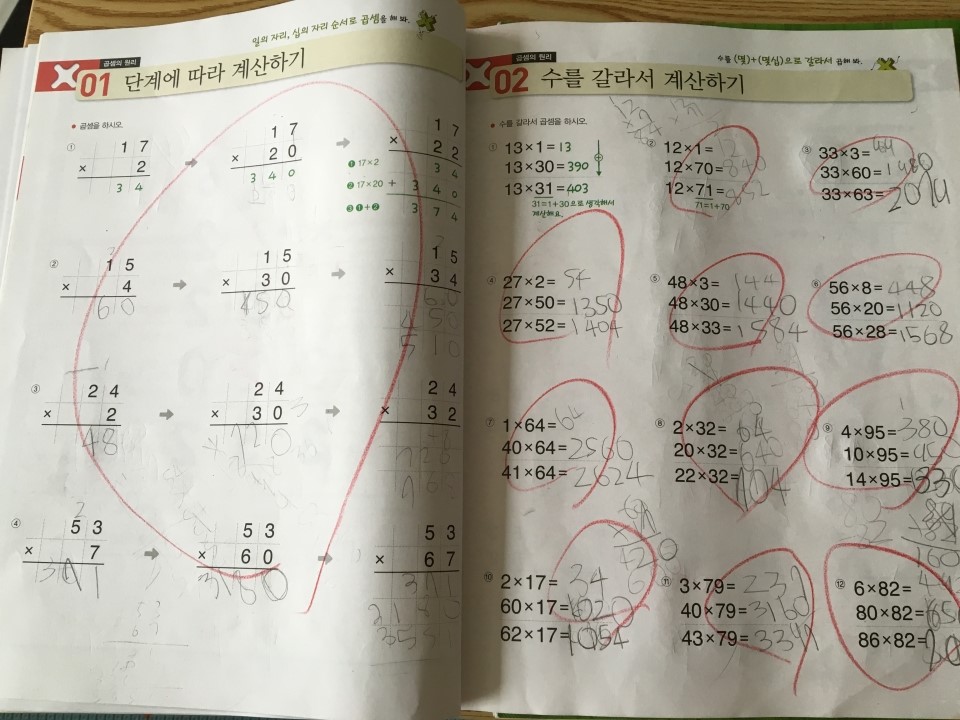 일의 자리, 십의 자리 순서로 곱셈을 해 봐.
곱셈의 원리
01 단계에 따라 계산하기
• 곱셈을 하시오.
①
1 7
× 2
3 4
1 7
× 2 0
3 4 0
1 7
× 2 2
❶ 17×2 3 4
❷ 17×20 + 3 4 0
❸ ❶+❷ 3 7 4
②
1 5
× 4
60
1 5
× 3 0
450
1 5
× 3 4
60
450
510
③
2 4
× 2
48
2 4
× 3 0
720
2 4
× 3 2
④
5 3
× 7
5 3
× 6 0
5 3
× 6 7
수를 (몇)+(몇십)으로 갈라서 곱해 봐.
곱셈의 원리
02 수를 갈라서 계산하기
• 수를 갈라서 곱셈을 하시오.
① 13×1=13
13×30=390
13×31=403
31=1+30으로 생각해서
계산해요.
② 12×1=12
12×70=840
12×71=852
71=1+70
③ 33×3=
33×60=
33×63=
④ 27×2=54
27×50=1350
27×52=1404
⑤ 48×3=144
48×30=1440
48×33=1584
⑥ 56×8=448
56×20=1120
56×28=1568
⑦ 1×64=64
40×64=2560
41×64=2624
⑧ 2×32=64
20×32=640
22×32=704
⑨ 4×95=380
10×95=
14×95=
⑩ 2×17=34
60×17=1020
62×17=1054
⑪ 3×79=237
40×79=3160
43×79=
⑫ 6×82=
80×82=
86×82=